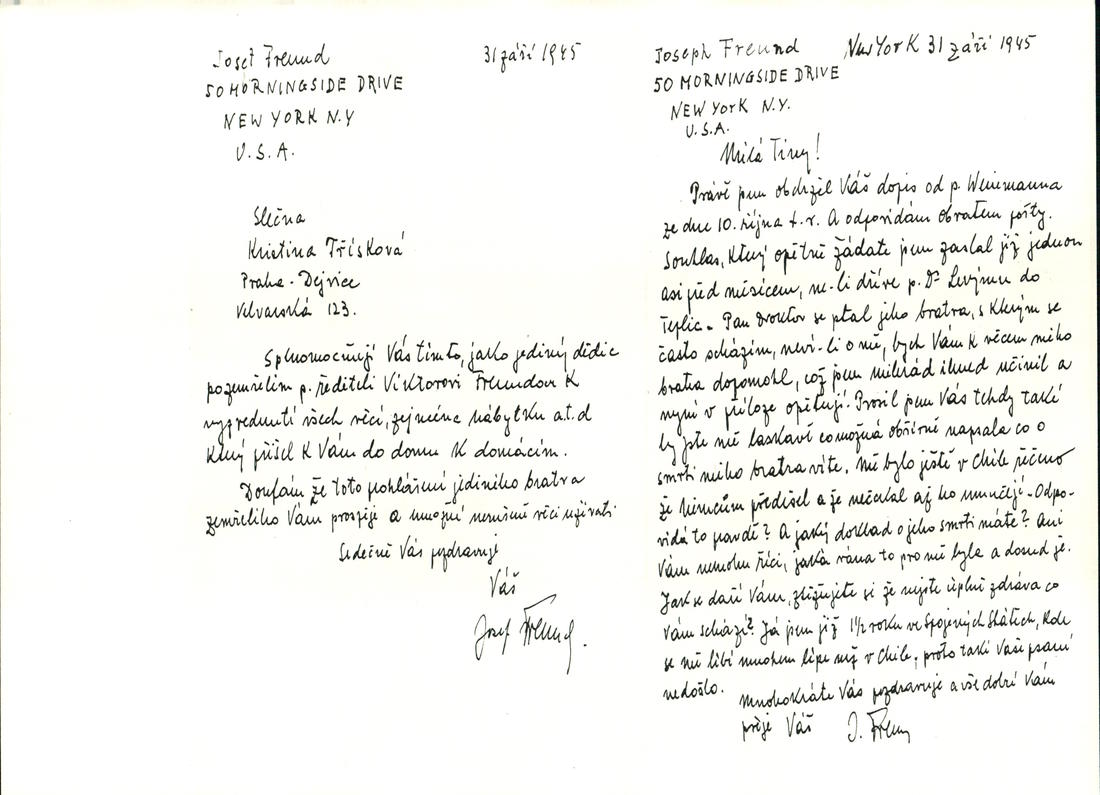 Josef Freund 31 září 1945
50 MORNINGSIDE DRIVE
NEW YORK N.Y
U.S.A.
Slečna
Kristina Třísková
Praha - Dejvice
Velvarská 123.
Splnomocňuji Vás tímto, jako jediný dědic
po zemřelém p. řediteli Viktorovi Freundovi k
vyzvednutí všech věcí, zejména nábytku a.t.d
který přišel k Vám do domu k domácím.
Doufám že toto prohlášení jediného bratra
zemřelého Vám prospěje a umožní nerušeně věci užívati
Srdečně Vás pozdravuje
Váš
Josef Freund.
Joseph Freund New York 31 září 1945
50 MORNINGSIDE DRIVE
NEW YorK N.Y.
U.S.A.
Milá Tiny!
Právě jsem obdržel Váš dopis od p. Weinmanna
ze dne 10. října t.r. A odpovídám obratem pošty.
Souhlas, který opětně žádáte jsem zaslal již jednou
asi před měsícem, ne-li dříve p. Dr Levýmu do
Teplic. Pan Doktor se ptal jeho bratra, s kterým se
často scházím, neví-li o mě, bych Vám k věcem mého
bratra dopomohl, což jsem milerád ihned učinil a
nyní v příloze opětuji. Prosil jsem Vás tehdy také
by jste mě laskavě co možná obšírně napsala co o
smrti mého bratra víte. Mě bylo ještě v Chile řečeno
že Němcům předešel a že nečekal až ho umučejí - Odpo-
vídá to pravdě? A jaký doklad o jeho smrti máte? Ani
Vám nemohu říci, jaká rána to pro mě byla a dosud je.
Jak se daří Vám, stěžujete si že nejste úplně zdráva co
Vám schází? Já jsem již 1½ roku ve Spojených Státech, kde
se mě líbí mnohem lépe než v Chile, proto také Vaše psaní
nedošlo.
Mnohokráte Vás pozdravuje a vše dobré Vám
přeje Váš J. Freund